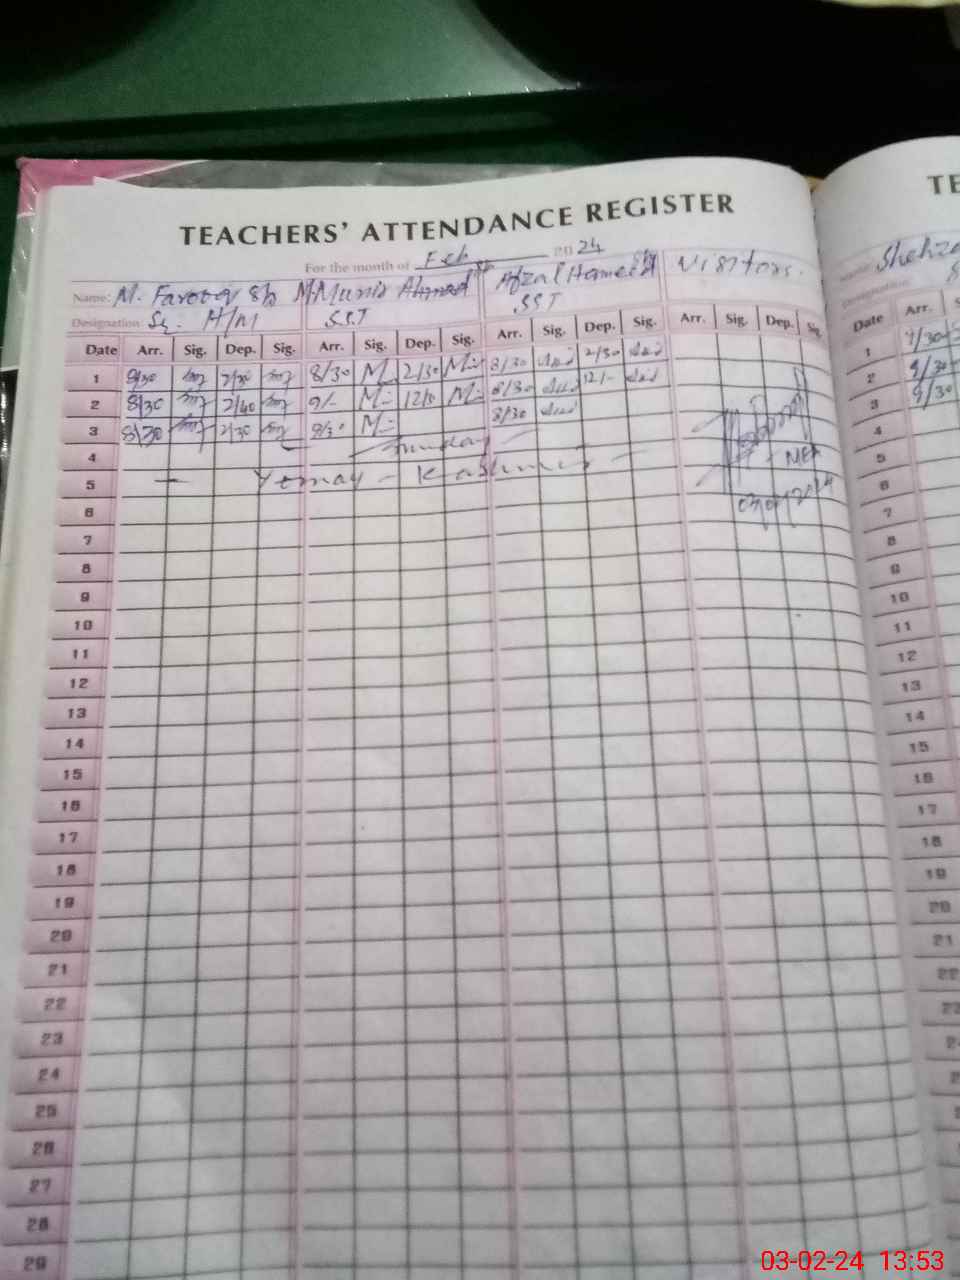 TEACHERS' ATTENDANCE REGISTER
TE
For the month of Feb 2024
Name: M. Farooq M Munir Ahmad Afzal Hameed Visitors.
Designation: Sr. H/M SST SST
Date Arr. Sig. Dep. Sig. Arr. Sig. Dep. Sig. Arr. Sig. Dep. Sig. Arr. Sig. Dep. Sig. Date Arr.
1 8/30 2/30 8/30 M 2/30 M 8/30 2/30 1
2 8/30 2/40 9/- M 12/0 M 8/30 12/- 2 9/30
3 8/30 2/30 8/30 M 8/30 3 9/30
4 Sunday 4
5 Yomay - Kashmir - 5
6 03/02/2024 6
7 7
8 8
9 9
10 10
11 11
12 12
13 13
14 14
15 15
16 16
17 17
18 18
19 19
20 20
21 21
22 22
23 23
24
25
26
27
28
29
03-02-24 13:53